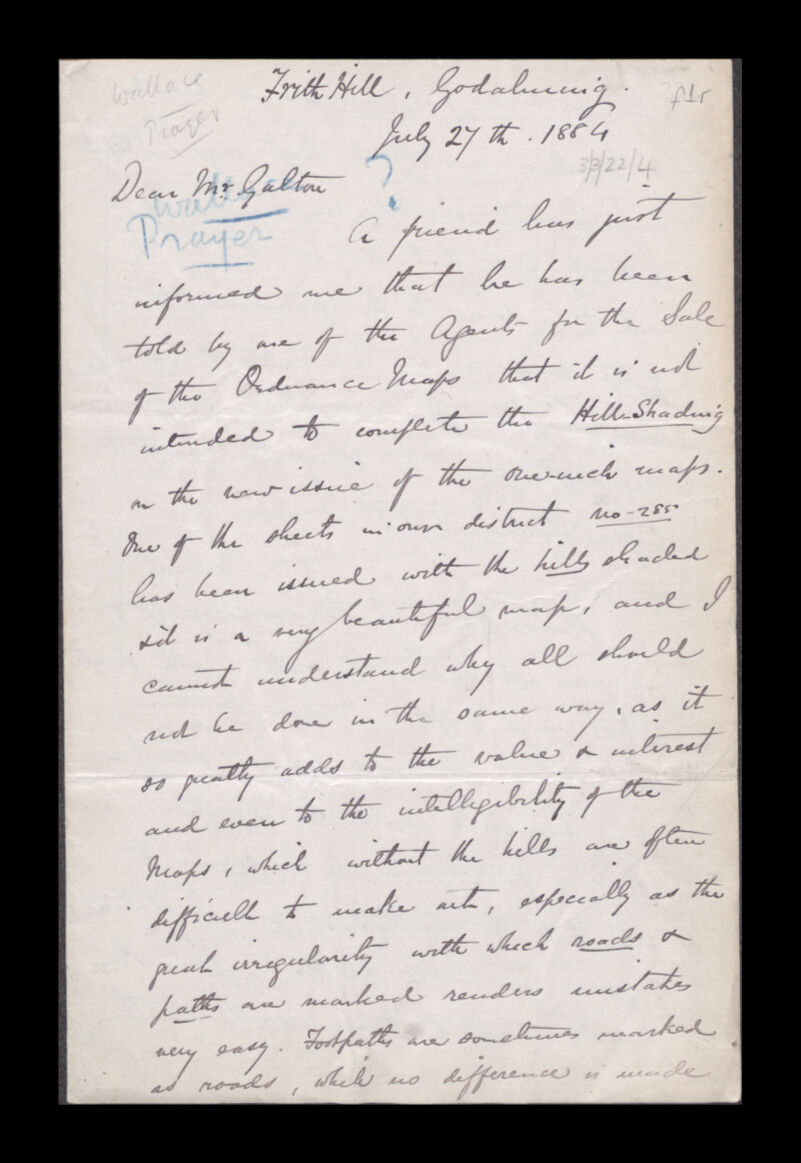 Wallace
Prayer
Frith Hill, Godalming.
f1r
July 27th. 1884
3/3/22/4
Dear Mr. Galton
?
Wallace
Prayer
A friend has just
informed me that he has been
told by one of the Agents for the Sale
of the Ordnance Maps that it is not
intended to complete the Hill-Shading
on the new issue of the one-inch maps.
One of the sheets in our district no-285
has been issued with the hills shaded
& it is a very beautiful map, and I
cannot understand why all should
not be done in the same way, as it
so greatly adds to the value & interest
and even to the intelligibility of the
Maps, which without the hills are often
difficult to make out, especially as the
great irregularity with which roads &
paths are marked renders mistakes
very easy. Footpaths are sometimes marked
as roads, while no difference is made